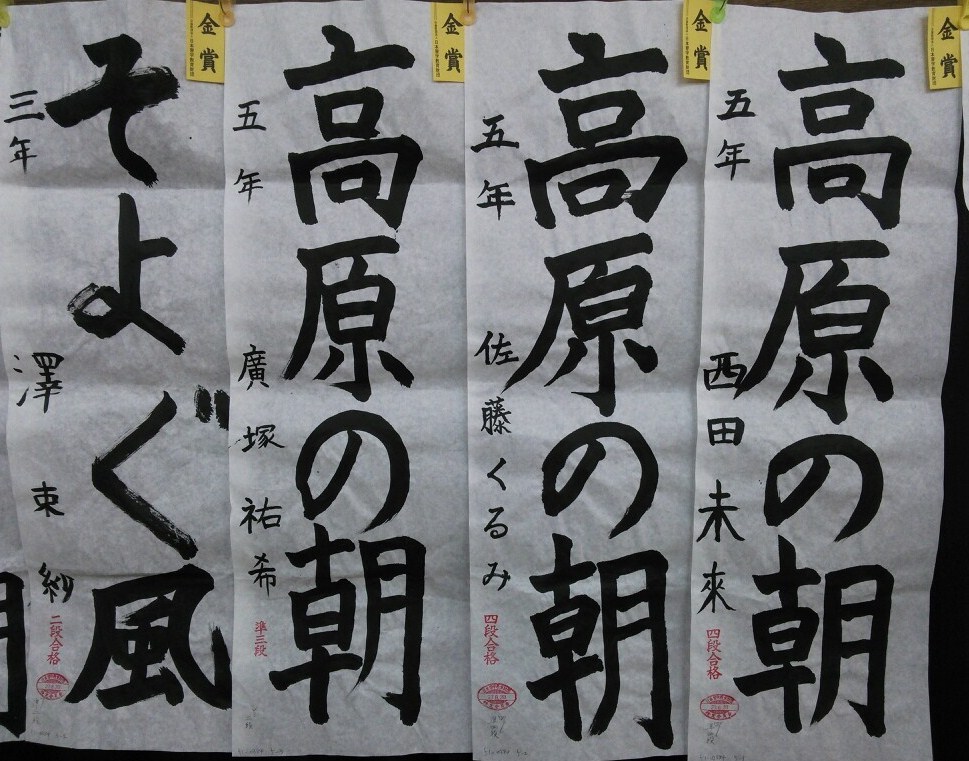 金賞
高原の朝
五年 西田未來
四段合格
金賞
高原の朝
五年 佐藤くるみ
四段合格
金賞
高原の朝
五年 廣塚祐希
準三段
金賞
そよぐ風
三年 澤束紗
二段合格